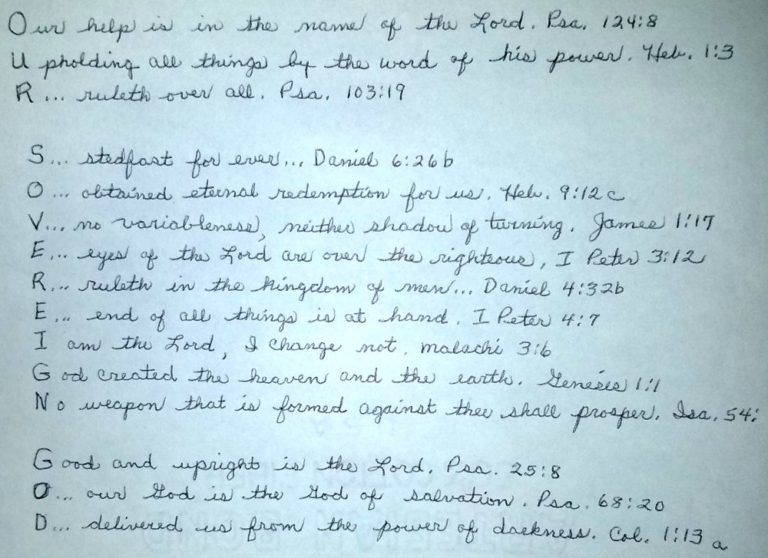 Our help is in the name of the Lord. Psa. 124:8
Upholding all things by the word of his power. Heb. 1:3
R... ruleth over all. Psa. 103:19
S... stedfast for ever... Daniel 6:26b
O... obtained eternal redemption for us. Heb. 9:12c
V... no variableness, neither shadow of turning. James 1:17
E... eyes of the Lord are over the righteous, I Peter 3:12
R... ruleth in the kingdom of men... Daniel 4:32b
E... end of all things is at hand. I Peter 4:7
I am the Lord, I change not. Malachi 3:6
God created the heaven and the earth. Genesis 1:1
No weapon that is formed against thee shall prosper. Isa. 54:
Good and upright is the Lord. Psa. 25:8
O... our God is the God of salvation. Psa. 68:20
D... delivered us from the power of darkness. Col. 1:13a